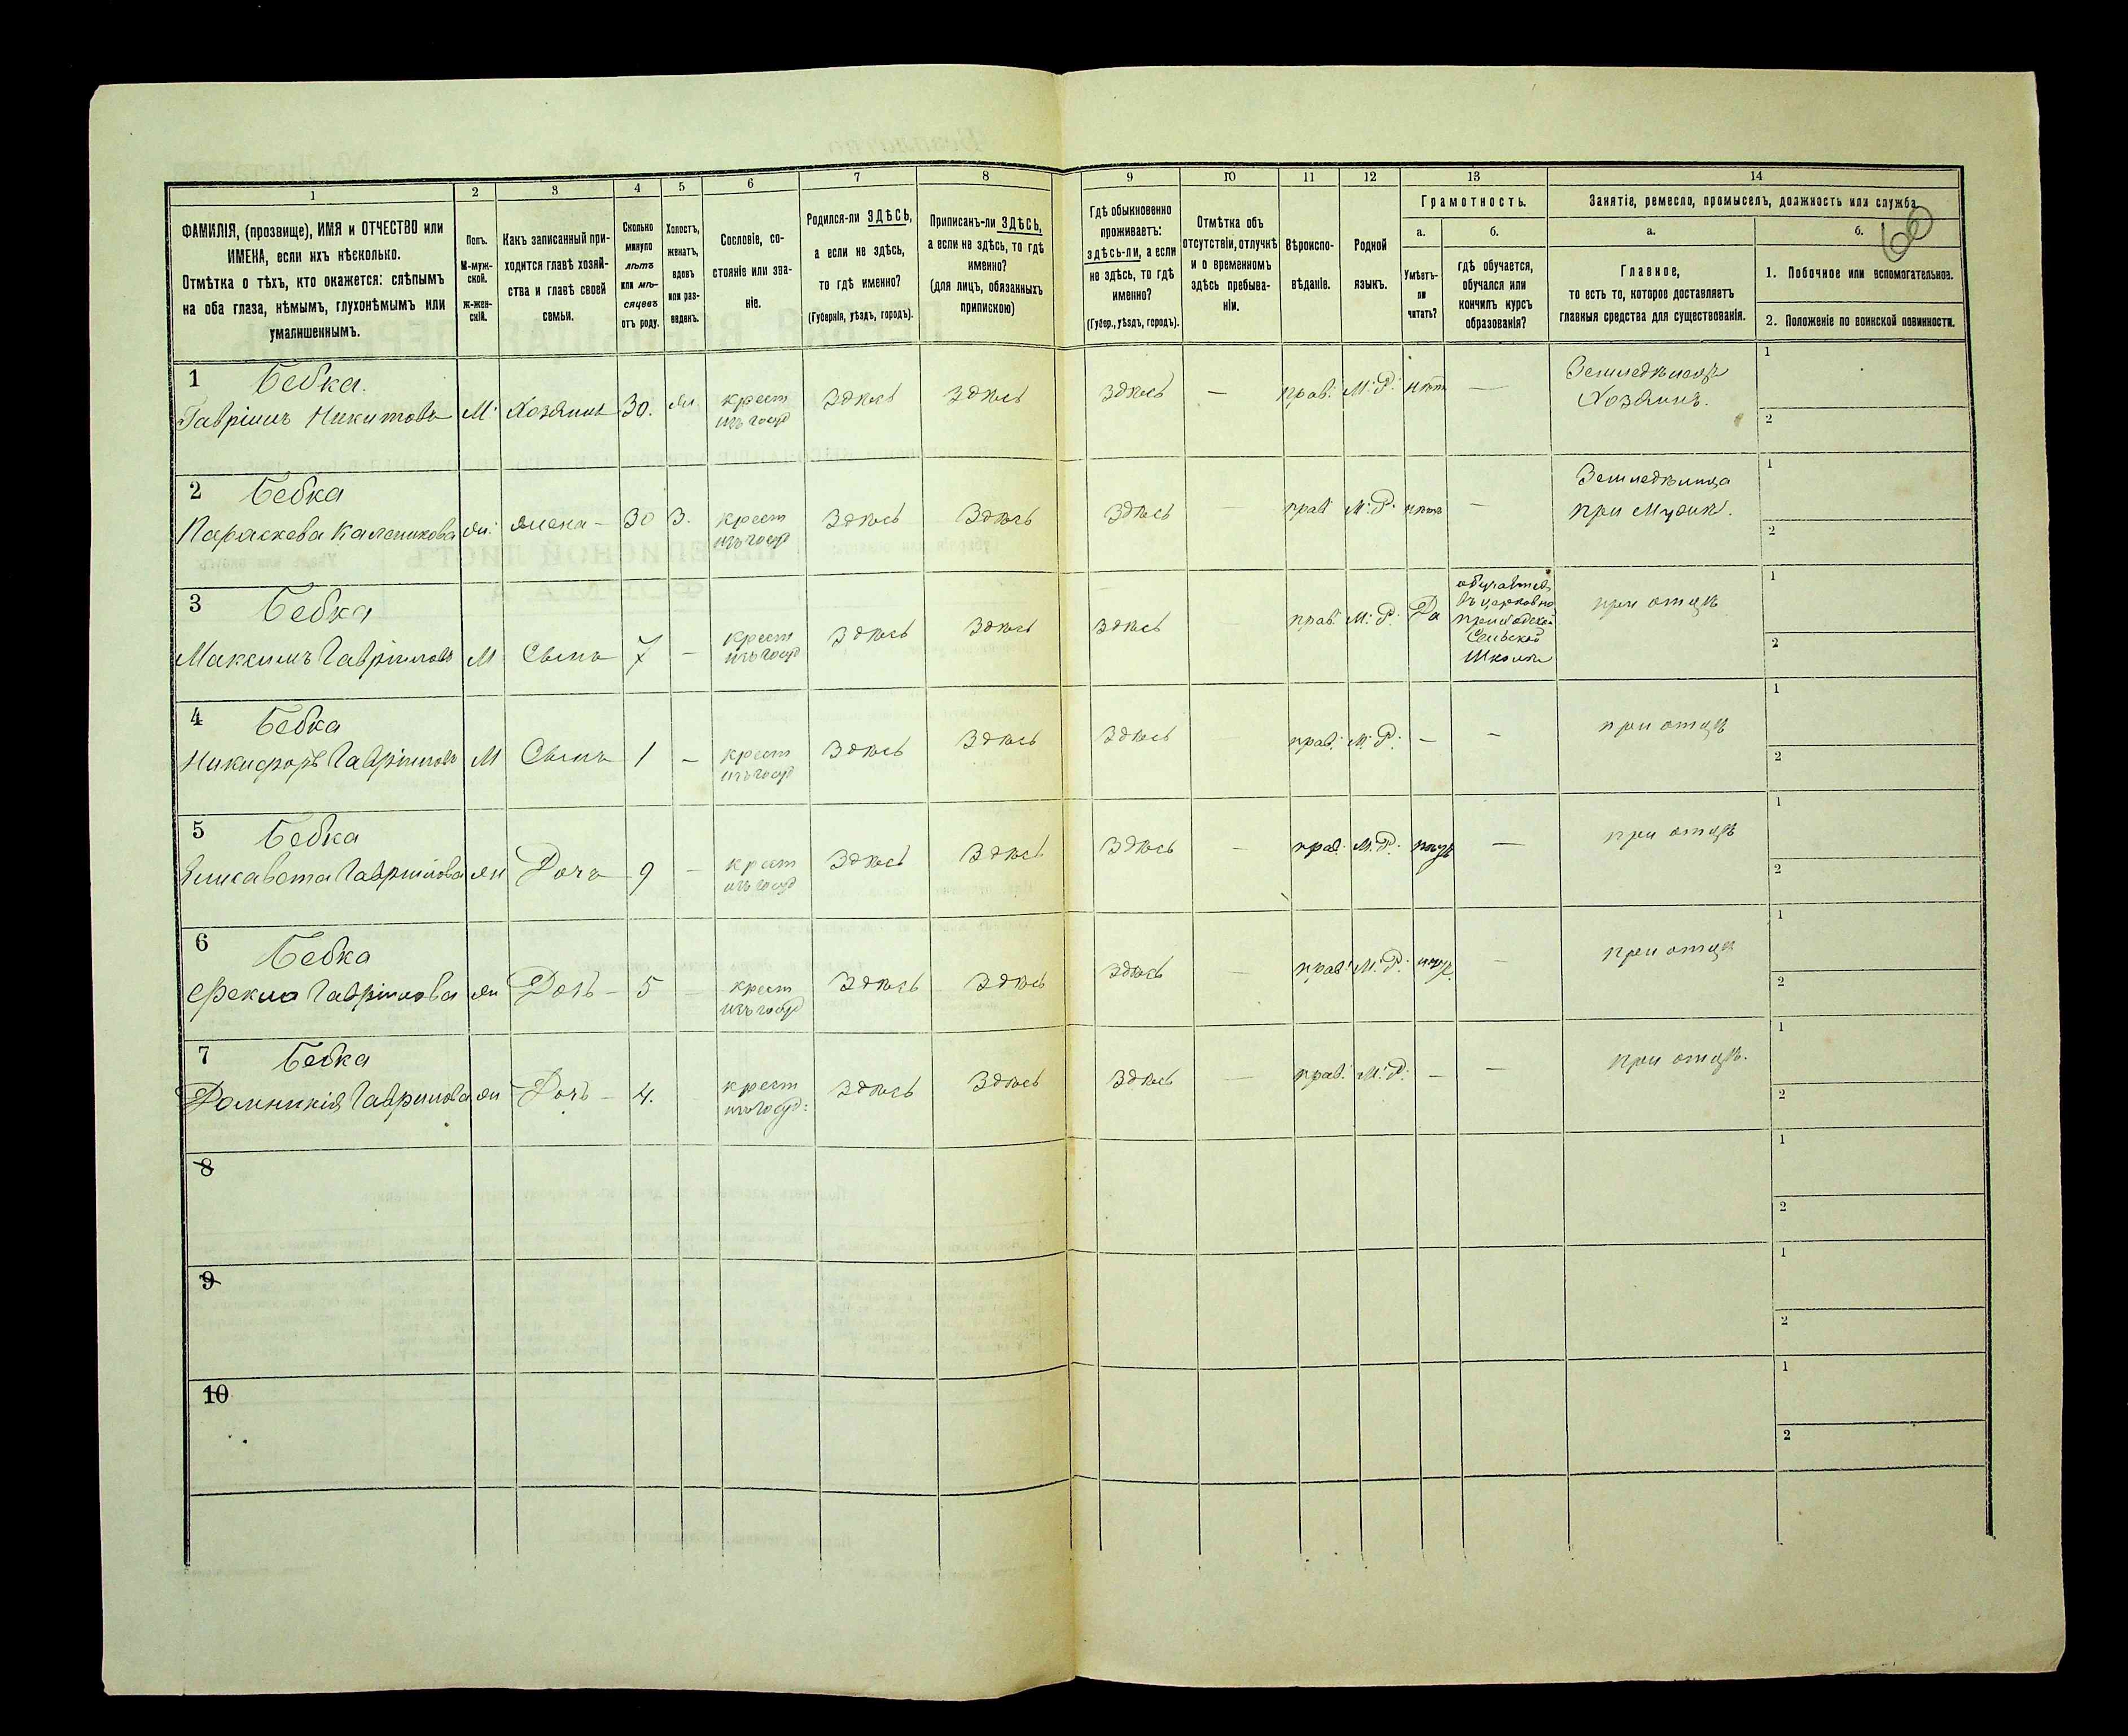 60
1 2 3 4 5 6 7 8 9 10 11 12 13 14
ФАМИЛІЯ, (прозвище), ИМЯ и ОТЧЕСТВО или
ИМЕНА, если ихъ нѣсколько.
Отмѣтка о тѣхъ, кто окажется: слѣпымъ
на оба глаза, нѣмымъ, глухонѣмымъ или
умалишеннымъ.
Полъ.
М-муж-
ской.
Ж-жен-
скій.
Какъ записанный при-
ходится главѣ хозяй-
ства и главѣ своей
семьи.
Сколько
минуло
лѣтъ
или мѣ-
сяцевъ
отъ роду.
Холостъ,
женатъ,
вдовъ
или раз-
веденъ.
Сословіе, со-
стояніе или зва-
ніе.
Родился-ли ЗДѢСЬ,
а если не здѣсь,
то гдѣ именно?
(Губернія, уѣздъ, городъ).
Приписанъ-ли ЗДѢСЬ,
а если не здѣсь, то гдѣ
именно?
(для лицъ, обязанныхъ
припискою)
Гдѣ обыкновенно
проживаетъ:
здѣсь-ли, а если
не здѣсь, то гдѣ
именно?
(Губер., уѣздъ, городъ).
Отмѣтка объ
отсутствіи, отлучкѣ
и о временномъ
здѣсь пребыва-
ніи.
Вѣроиспо-
вѣданіе.
Родной
языкъ.
Грамотность.
а.
Умѣетъ-
ли
читать?
б.
гдѣ обучается,
обучался или
кончилъ курсъ
образованія?
Занятіе, ремесло, промыселъ, должность или служба.
а.
Главное,
то есть то, которое доставляетъ
главныя средства для существованія.
б.
1. Побочное или вспомогательное.
2. Положеніе по воинской повинности.
1 Бебка.
Гавріилъ Никитовъ М. Хозяинъ 30. ж крест изъ госуд Здѣсь Здѣсь Здѣсь — прав. М.Р. нѣт — Земледѣлецъ Хозяинъ.
1
2
2 Бебка
Параскева Калениковa ж. жена - 30 З. крест изъ госуд Здѣсь Здѣсь Здѣсь — прав М.Р. нѣт — Земледѣлица при Мужѣ.
1
2
3 Бебка
Максимъ Гавріиловъ М Сынъ 7 — крест изъ госуд Здѣсь Здѣсь Здѣсь — прав. М.Р. Да
обучается
въ церковно
приходской
Сельской
Школѣ
при отцѣ
1
2
4 Бебка
Никифоръ Гавріиловъ М Сынъ 1 — крест изъ госуд Здѣсь Здѣсь Здѣсь — прав. М.Р. — — при отцѣ
1
2
5 Бебка
Елисавета Гавріилова ж Дочь 9 — крест изъ госуд Здѣсь Здѣсь Здѣсь — прав. М.Р. — при отцѣ
1
2
6 Бебка
Фекла Гавріилова ж Дочь — 5 крест изъ госуд Здѣсь Здѣсь Здѣсь — прав. М.Р. — при отцѣ
1
2
7 Бебка
Домникія Гавріилова ж Дочь — 4. крест изъ госуд: Здѣсь Здѣсь Здѣсь — прав. М.Р. — — при отцѣ.
1
2
8
1
2
9
1
2
10
1
2